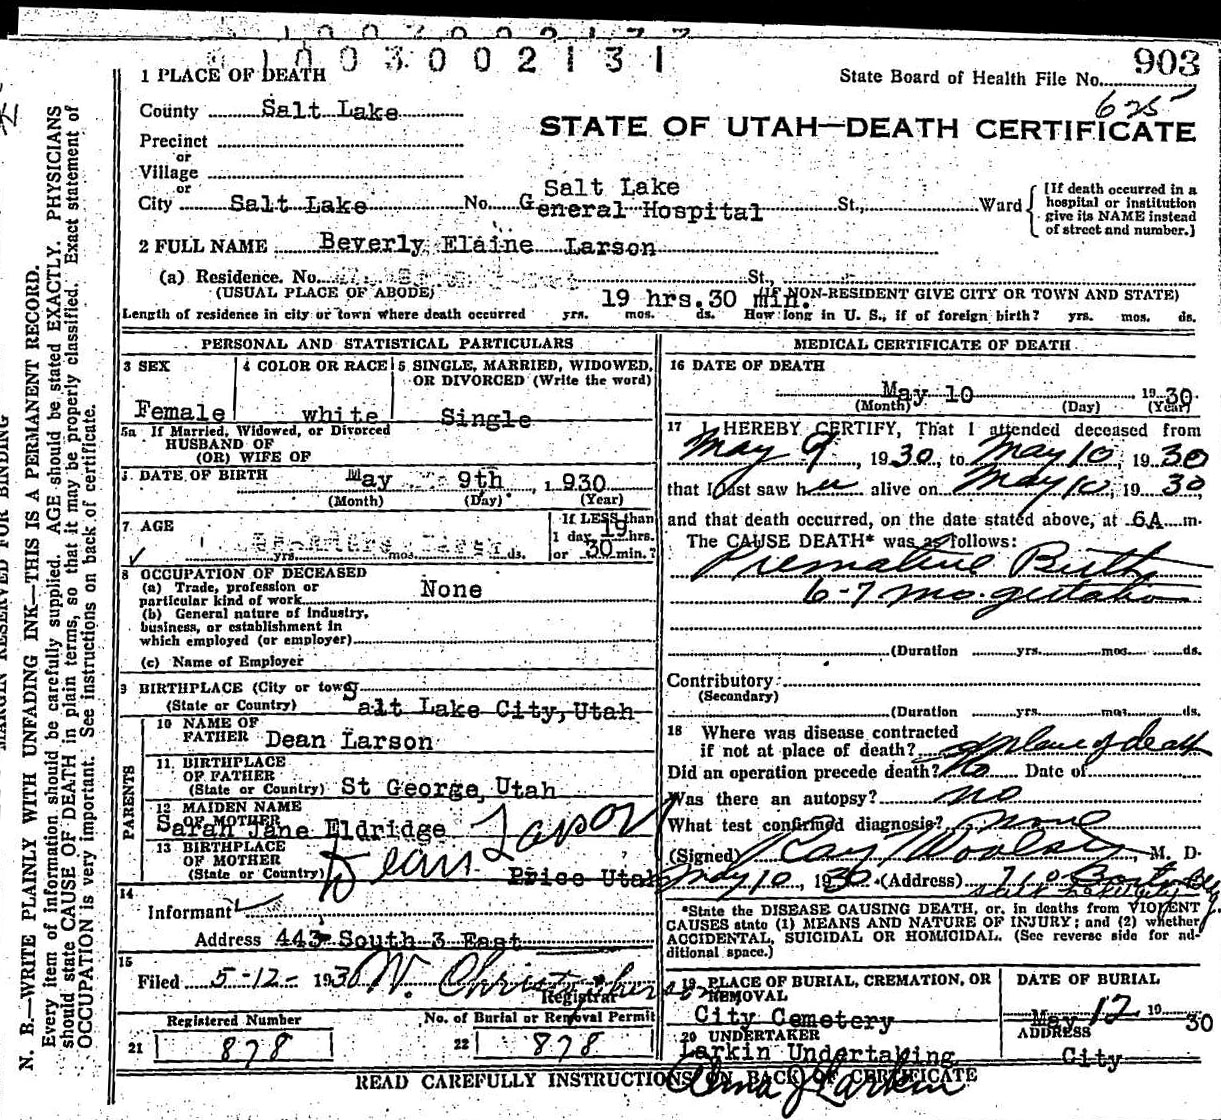 1003002131
903
1 PLACE OF DEATH
State Board of Health File No.
625
County Salt Lake
STATE OF UTAH—DEATH CERTIFICATE
Precinct
or
Village
or
City Salt Lake No. Salt Lake General Hospital St., Ward
[If death occurred in a
hospital or institution
give its NAME instead
of street and number.]
2 FULL NAME Beverly Elaine Larson
(a) Residence. No. St.
(USUAL PLACE OF ABODE) (IF NON-RESIDENT GIVE CITY OR TOWN AND STATE)
19 hrs.30 min.
Length of residence in city or town where death occurred yrs. mos. ds. How long in U. S., if of foreign birth? yrs. mos. ds.
PERSONAL AND STATISTICAL PARTICULARS
3 SEX
Female
4 COLOR OR RACE
white
5 SINGLE, MARRIED, WIDOWED,
OR DIVORCED (Write the word)
Single
5a If Married, Widowed, or Divorced
HUSBAND OF
(OR) WIFE OF
DATE OF BIRTH May 9th, 1930
(Month) (Day) (Year)
7 AGE
yrs. mos. ds.
If LESS than
1 day, 19 hrs.
or 30 min.?
8 OCCUPATION OF DECEASED
(a) Trade, profession or
particular kind of work None
(b) General nature of industry,
business, or establishment in
which employed (or employer)
(c) Name of Employer
9 BIRTHPLACE (City or town)
(State or Country) Salt Lake City, Utah
PARENTS
10 NAME OF
FATHER Dean Larson
11 BIRTHPLACE
OF FATHER
(State or Country) St George, Utah
12 MAIDEN NAME
OF MOTHER
Sarah Jane Eldridge
13 BIRTHPLACE
OF MOTHER
(State or Country) Price Utah
Dean Larson
14
Informant
Address 443 South 3 East
15
Filed 5-12- 1930 W. Christopherson
Registrar
Registered Number
21 878
No. of Burial or Removal Permit
22 878
MEDICAL CERTIFICATE OF DEATH
16 DATE OF DEATH
May 10 1930
(Month) (Day) (Year)
17 I HEREBY CERTIFY, That I attended deceased from
May 9, 1930, to May 10, 1930
that I last saw her alive on May 10, 1930
and that death occurred, on the date stated above, at 6A m.
The CAUSE DEATH* was as follows:
Premature Birth
6-7 mo. gestation
(Duration yrs. mos. ds.
Contributory
(Secondary)
(Duration yrs. mos. ds.
18 Where was disease contracted
if not at place of death? at place of death
Did an operation precede death? No Date of
Was there an autopsy? no
What test confirmed diagnosis? none
(Signed) Ray Woolsey, M. D.
May 10, 1930 (Address) 710 Boston Bldg.
*State the DISEASE CAUSING DEATH, or, in deaths from VIOLENT
CAUSES state (1) MEANS AND NATURE OF INJURY; and (2) whether
ACCIDENTAL, SUICIDAL OR HOMICIDAL. (See reverse side for ad-
ditional space.)
19 PLACE OF BURIAL, CREMATION, OR
REMOVAL
City Cemetery
DATE OF BURIAL
May 12 1930
20 UNDERTAKER
Larkin Undertaking
ADDRESS
City
READ CAREFULLY INSTRUCTIONS ON BACK OF CERTIFICATE
Alma J Larkin
MARGIN RESERVED FOR BINDING
N. B.—WRITE PLAINLY WITH UNFADING INK—THIS IS A PERMANENT RECORD.
Every item of information should be carefully supplied. AGE should be stated EXACTLY. PHYSICIANS
should state CAUSE OF DEATH in plain terms, so that it may be properly classified. Exact statement of
OCCUPATION is very important. See instructions on back of certificate.